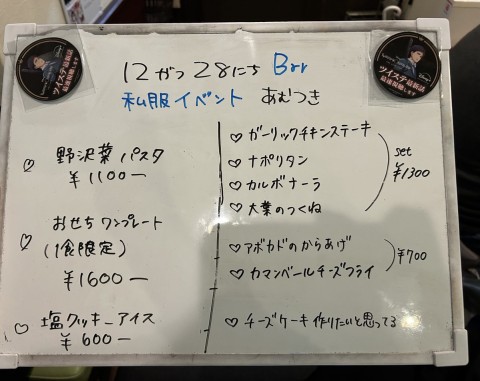 12がつ28にち Bar
私服イベント あむつき
♡ 野沢菜パスタ
¥1100ー
♡ おせちワンプレート
(1食限定)
¥1600ー
♡ 塩クッキーアイス
¥600ー
♡ ガーリックチキンステーキ
♡ ナポリタン
♡ カルボナーラ
♡ 大葉のつくね
set
¥1300
♡ アボカドのからあげ
♡ カマンベールチーズフライ
¥700
♡ チーズケーキ作りたいと思ってる
ツイステ最新話
ツイステ最新話